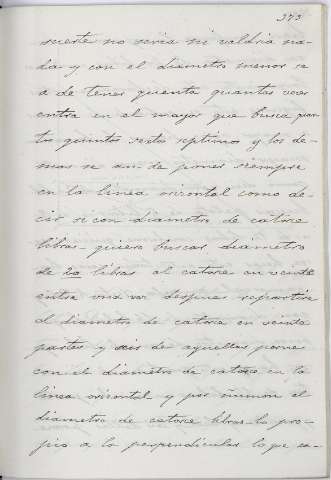 373
suerte no seria ni valdria na-
da y con el diametro menor se
a de tener quenta quantas veces
entra en el mayor que busca quan
tos quintos sextos septimos y los de-
mas se an de poner siempre
en la linea orisontal como de-
cir si con diametro de catorce
libras quiero buscar diametro
de 20 libras al catorce en veinte
entra una vez despues repartire
el diametro de catorce en veinte
partes y seis de aquellas porne
con el diametro de catorce en la
linea orisontal y por el
diametro de catorce libras lo pro-
pio a la perpendicular lo que ca-